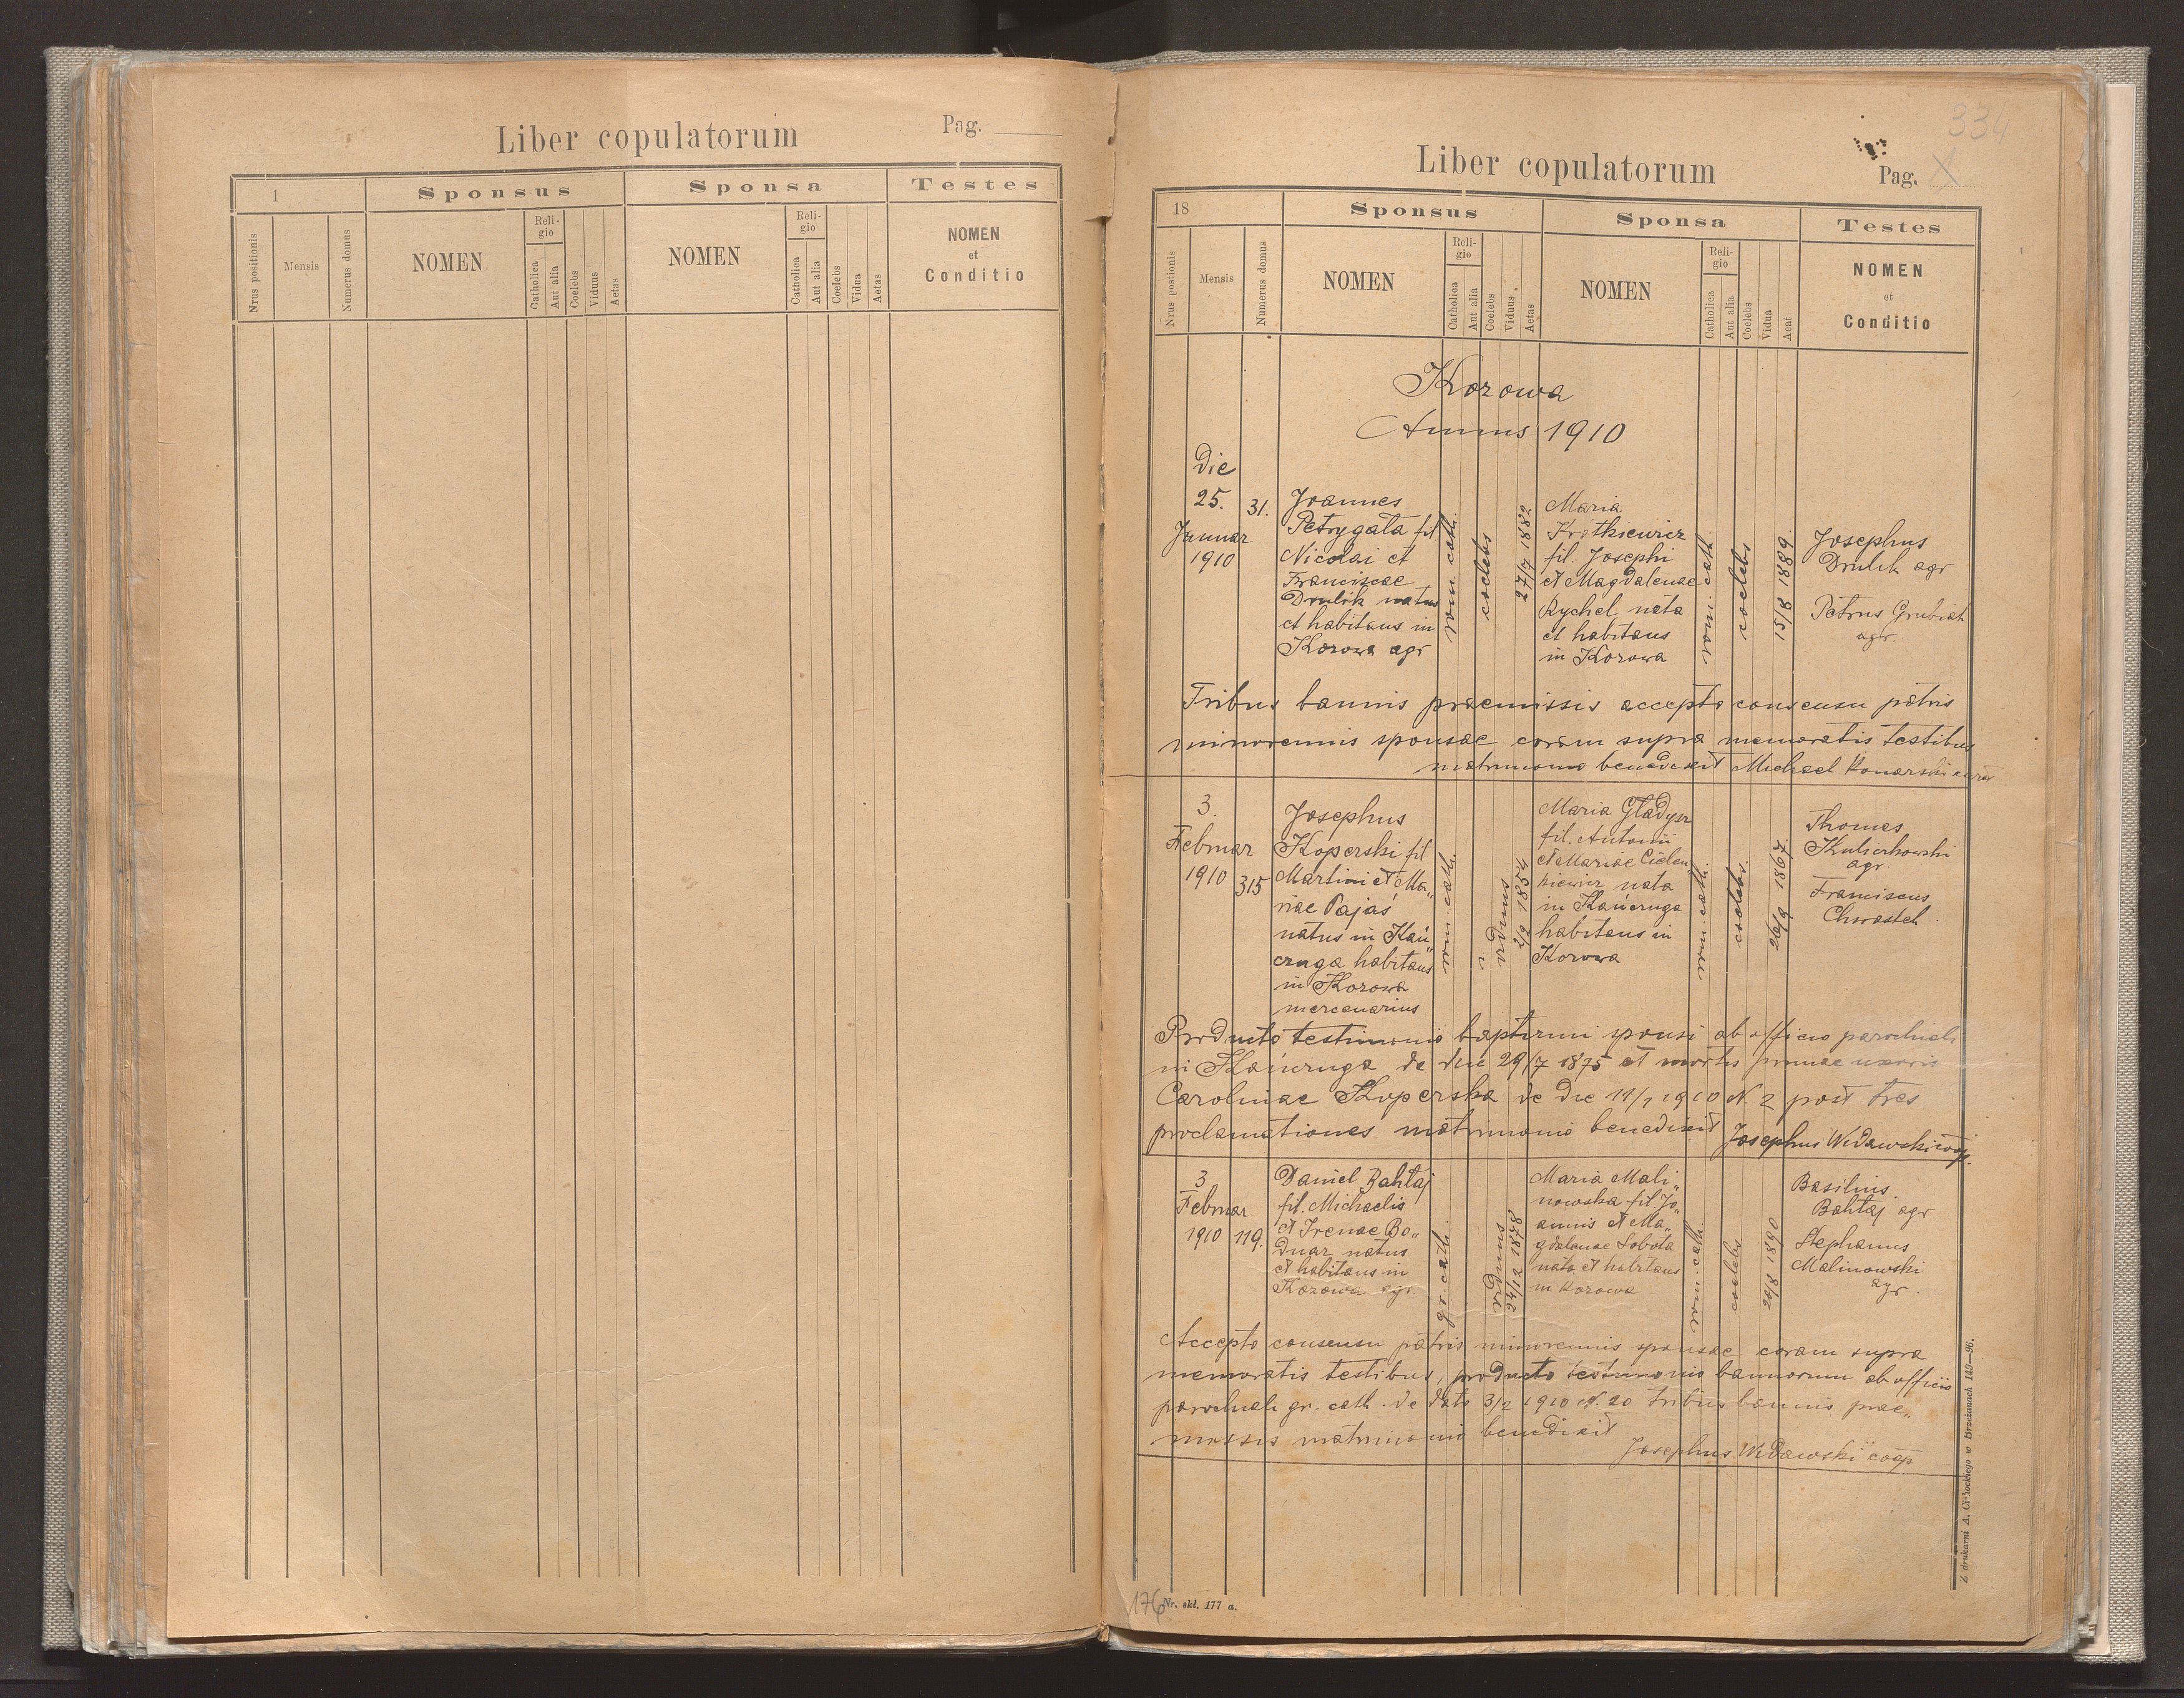 Liber copulatorum
Pag.
1
Sponsus
Sponsa
Testes
Nrus positionis
Mensis
Numerus domus
NOMEN
Reli-
gio
Catholica
Aut alia
Coelebs
Viduus
Aetas
NOMEN
Reli-
gio
Catholica
Aut alia
Coelebs
Vidua
Aetas
NOMEN
et
Conditio
334
Liber copulatorum
Pag.
18
Sponsus
Sponsa
Testes
Nrus postionis
Mensis
Numerus domus
NOMEN
Reli-
gio
Catholica
Aut alia
Coelebs
Viduus
Aetas
NOMEN
Reli-
gio
Catholica
Aut alia
Coelebs
Vidua
Aeat
NOMEN
et
Conditio
Kozowa
Annus 1910
Die
25.
Januar
1910
31.
Joannes
Petrygata fil
Nicolai et
Franciscae
Drulik natus
et habitans in
Kozowa agr
rom. cath.
coelebs
27/7 1882
Maria
Krotkiewicz
fil. Josephi
et Magdalenae
Rychel nata
et habitans
in Kozowa
rom. cath.
coelebs
15/8 1889.
Josephus
Drulik agr
Petrus Grubiak
agr.
Tribus bannis praemissis accepto consensu patris
minorennis sponsae coram supra memoratis testibus
matrimonio benedixit Michael Konarski
3.
Februar
1910
315
Josephus
Koperski fil
Martini et Ma„
riae Pająś
natus in Kań„
czuga habitans
in Kozowa
mercenarius
rom. cath.
viduus
2/2 1854
Maria Gładysz
fil. Antonii
et Mariae Cielen
kiewicz nata
in Kańczuga
habitans in
Kozowa
rom. cath.
coelebs.
26/9 1867
Thomas
Kucharkowski
agr.
Franciscus
Chwastek.
Producto testimonio baptismi sponsi ab officio parochiali
in Kańczuga de die 29/7 1875 et mortis primae uxoris
Carolinae Koperska de die 11/1 1910 N. 2 post tres
proclamationes matrimonio benedixit Josephus Widawski coop.
3
Februar
1910
119.
Daniel Bahtaj
fil. Michaelis
et Irenae Bo„
dnar natus
et habitans in
Kozowa agr.
gr. cath.
viduus
24/12 1878
Maria Mali„
nowska fil. Jo„
annis et Ma„
gdalenae Sobota
nata et habitans
in Kozowa
rom. cath.
coelebs.
20/8 1890
Basilius
Bahtaj agr
Stephanus
Malinowski
agr.
Accepto consensu patris minorennis sponsae coram supra
memoratis testibus, producto testimonio bannorum ab officio
parochiali gr. cath. de dato 3/2 1910 N. 20 tribus bannis prae„
missis matrimonio benedixit
Josephus Widawski coop
176
Nr. skł. 177 a.
Z drukarni A. w Brzeżanach 149—96.